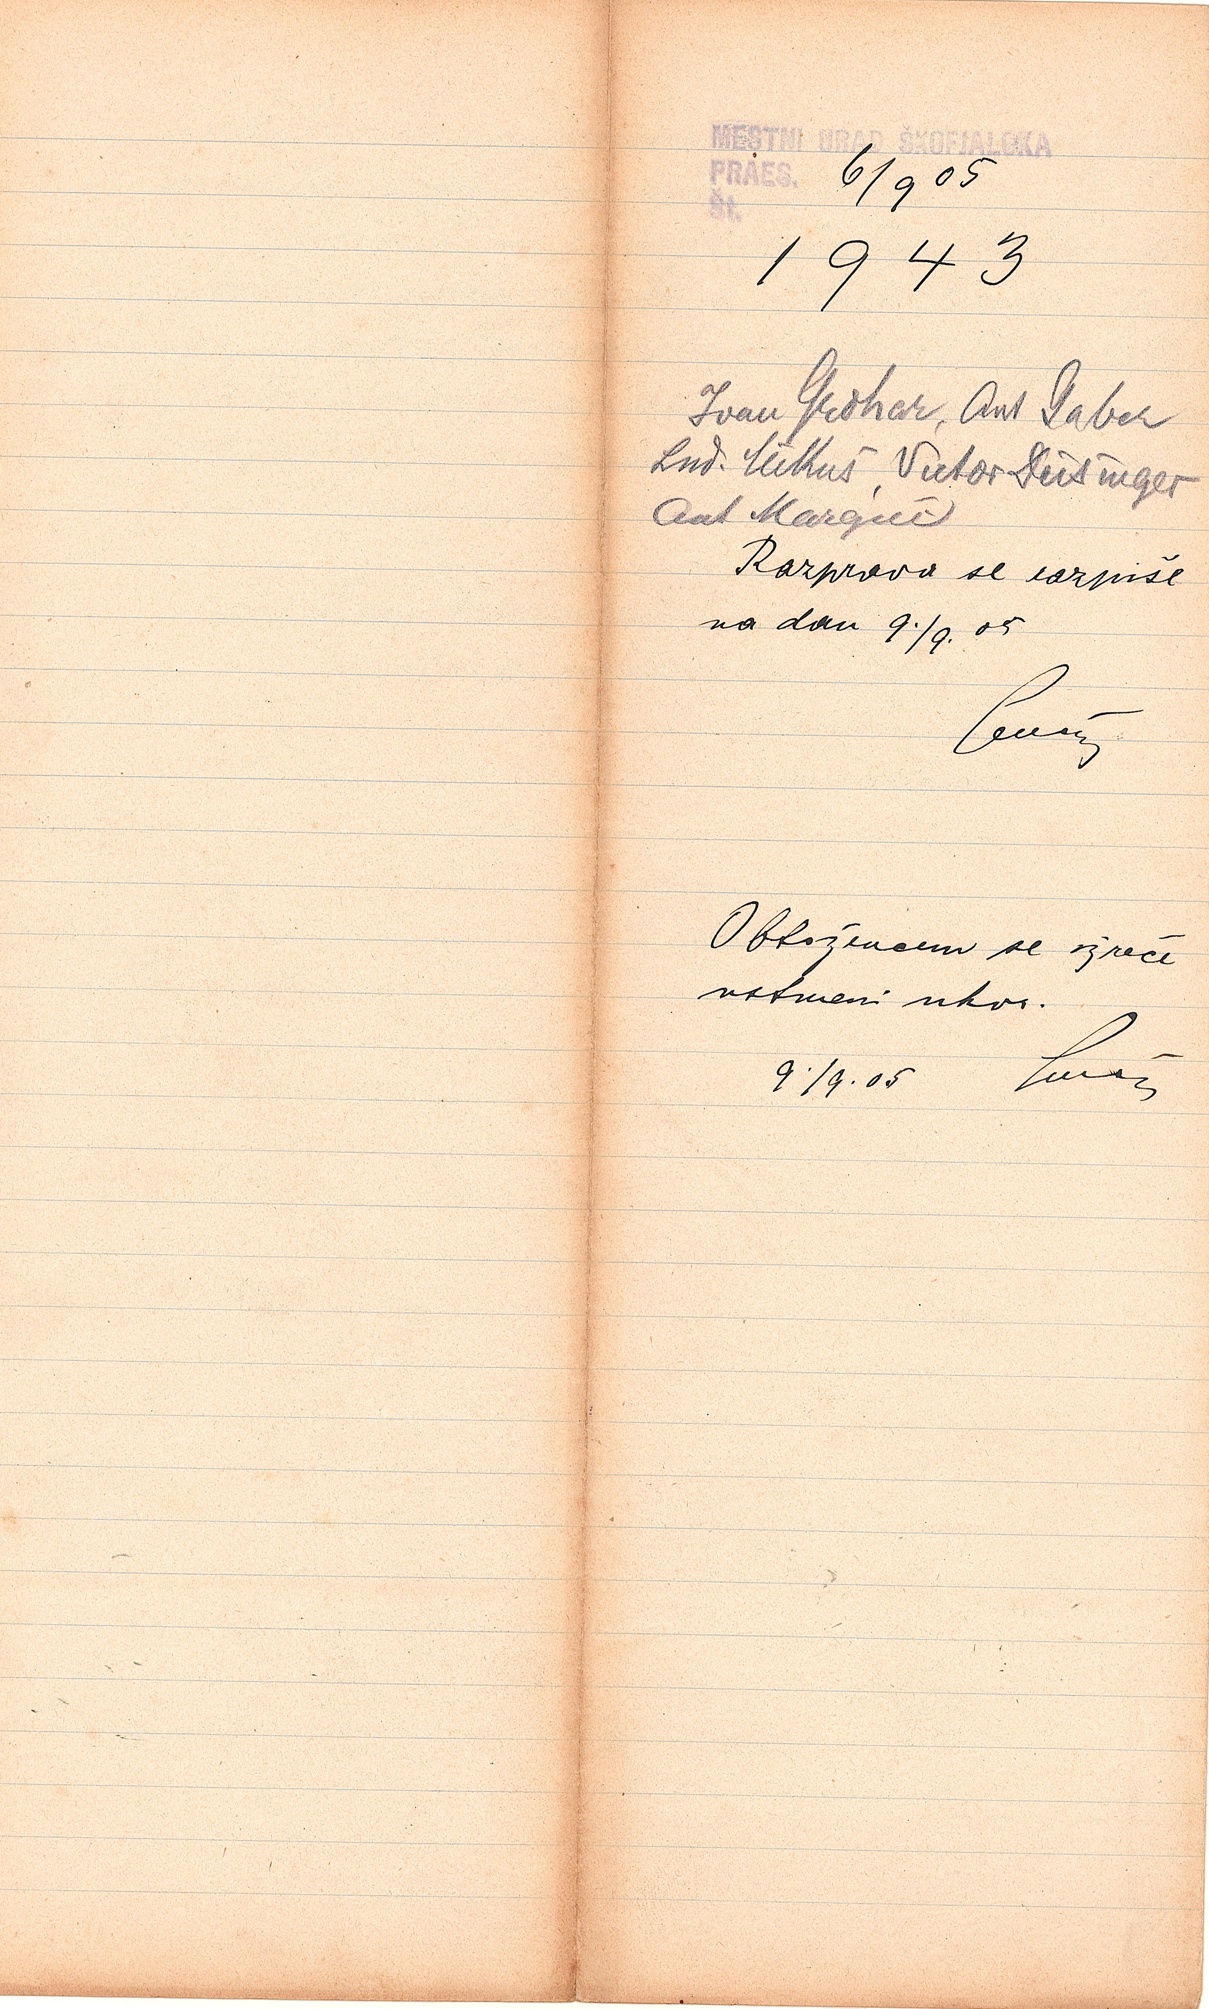 MESTNI URAD ŠKOFJALOKA
PRAES. 6/9 05
Št.
1943
Ivan Grohar, Ant Gaber
Lud. Mikuš, Victor Deisinger
Ant
Razprava se razpiše
na dan 9./9. 05
Obtožencem se izreče
ustmeni ukor.
9./9. 05